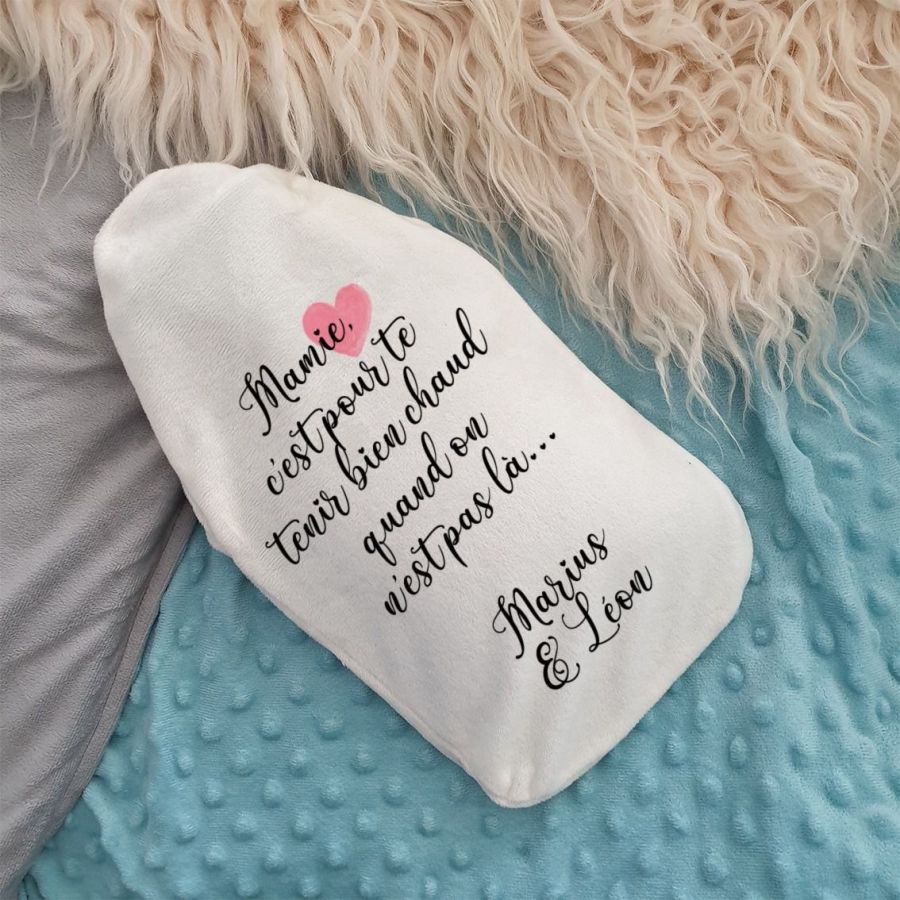 Mamie,
c'est pour te
tenir bien chaud
quand on
n'est pas là...
Marius
& Léon